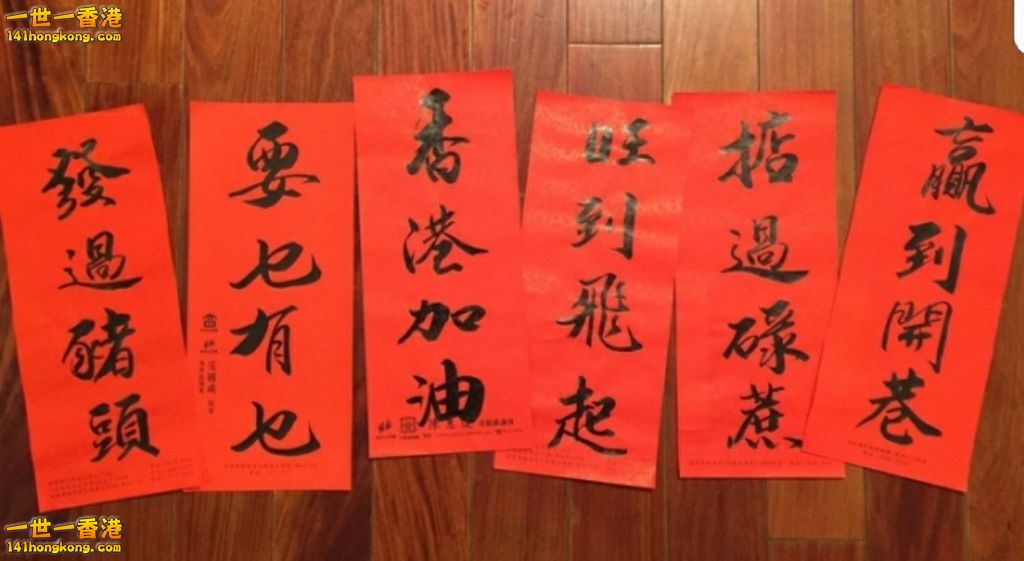 一世一香港
141hongkong.com
發過豬頭
要乜有乜
香港加油
旺到飛起
掂過碌蔗
贏到開巷
一世一香港
141hongkong.com